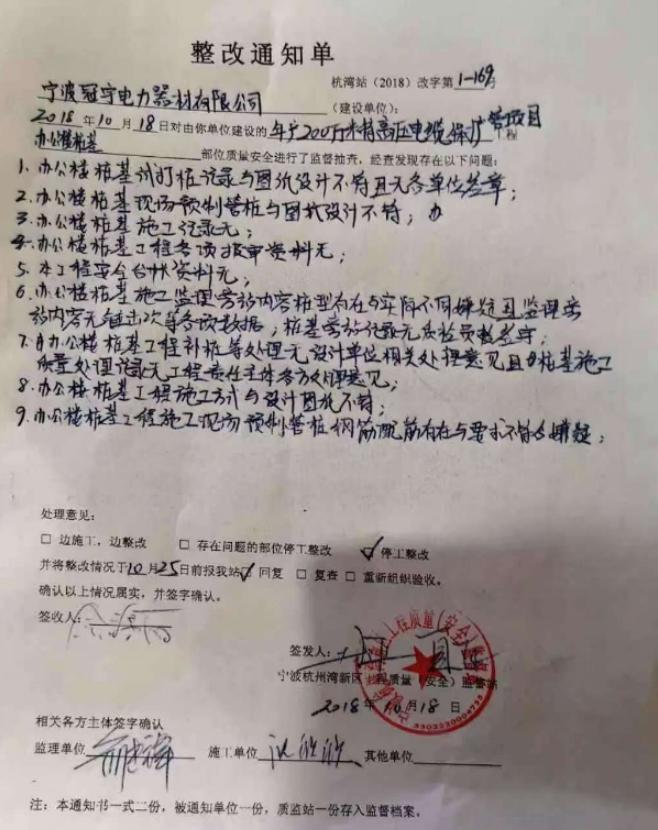 整改通知单
杭湾站（2018）改字第1-169号
宁波冠宇电力器材有限公司（建设单位）：
2018年10月18日对由你单位建设的年产200万米特高压电缆保护管项目工程
办公楼桩基部位质量安全进行了监督抽查，经查发现存在以下问题：
1、办公楼桩基试打桩记录与图纸设计不符且无各单位签章；
2、办公楼桩基现场预制管桩与图纸设计不符；
3、办公楼桩基施工记录无；
4、办公楼桩基工程各项报审资料无；
5、本工程安全台帐资料无；
6、办公楼桩基施工监理旁站内容桩型存在与实际不同嫌疑且监理旁
站内容无锤击次等各项数据；桩基旁站记录无质检员签字；
7、办公楼桩基工程补桩等处理无设计单位相关处理意见且桩基施工
质量处理记录无工程责任主体各方处理意见；
8、办公楼桩基工程施工方式与设计图纸不符；
9、办公楼桩基工程施工现场预制管桩钢筋配筋存在与要求不符的嫌疑；
处理意见：
□ 边施工，边整改 □ 存在问题的部位停工整改 ☑ 停工整改
并将整改情况于10月25日前报我站☑ 回复 □ 复查 □ 重新组织验收。
确认以上情况属实，并签字确认。
签收人：
签发人：
宁波杭州湾新区工程质量（安全）监督站
2018年10月18日
3302220004735
相关各方主体签字确认
监理单位 施工单位 其他单位
注：本通知书一式二份，被通知单位一份，质监站一份存入监督档案。